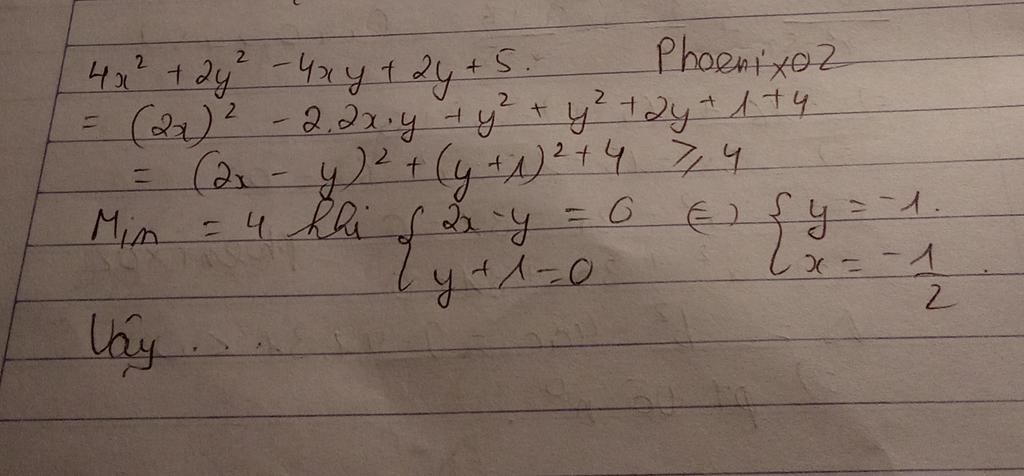 4x² + 2y² - 4xy + 2y + 5. Phoenix02
= (2x)² - 2.2x.y + y² + y² + 2y + 1 + 4
= (2x - y)² + (y + 1)² + 4 ≥ 4
Min = 4 khi { 2x - y = 0 (=) { y = -1.
y + 1 = 0 x = -1/2.
Vậy . . . .